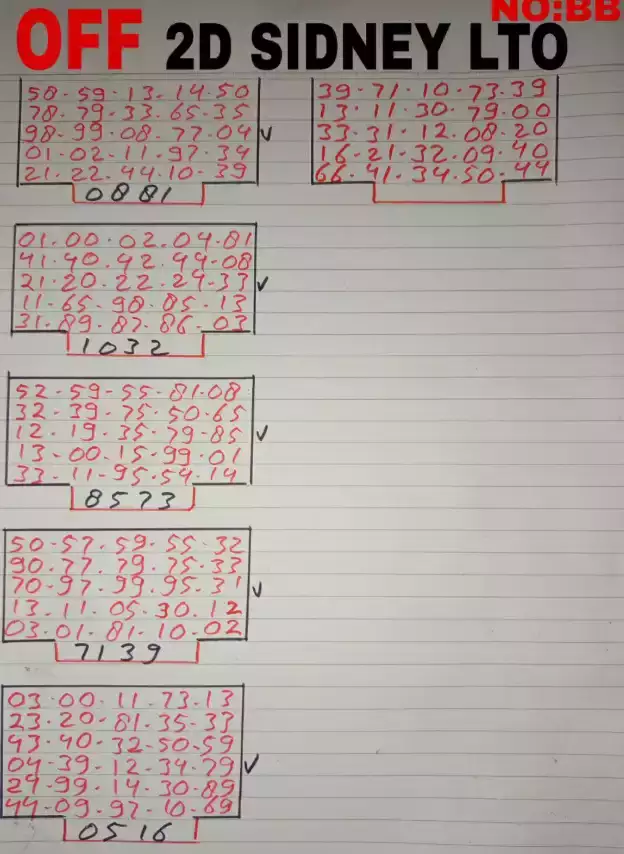 NO:BB
OFF 2D SIDNEY LTO
58-59-13-14-50
78-79-33-65-35
98-99-08-77-04 ✓
01-02-11-97-34
21-22-44-10-39
0881
39-71-10-73-39
13-11-30-79-00
33-31-12-08-20
16-21-32-09-40
66-41-34-50-44
01-00-02-04-81
41-40-42-44-08
21-20-22-24-33 ✓
11-65-98-85-13
31-89-87-86-03
1032
52-59-55-81-08
32-39-75-50-65
12-19-35-79-85 ✓
13-00-15-99-01
33-11-95-54-14
8573
50-57-59-55-32
90-77-79-75-33
70-97-99-95-31 ✓
13-11-05-30-12
03-01-81-10-02
7139
03-00-11-73-13
23-20-81-35-33
43-40-32-50-59
04-39-12-34-79 ✓
24-99-14-30-89
44-09-97-10-69
0516